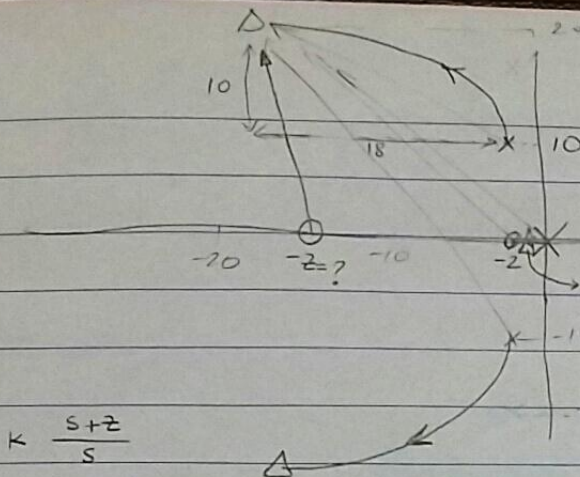 2
10
10
18
-20
-z=?
-10
-2
-1
K (s+z)/s